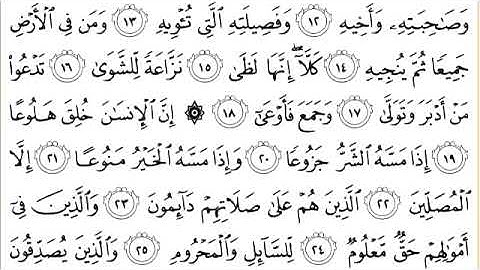 وَصَٰحِبَتِهِۦ وَأَخِيهِ ١٢ وَفَصِيلَتِهِ ٱلَّتِى تُـْٔوِيهِ ١٣ وَمَن فِى ٱلْأَرْضِ
جَمِيعًا ثُمَّ يُنجِيهِ ١٤ كَلَّآ ۖ إِنَّهَا لَظَىٰ ١٥ نَزَّاعَةً لِّلشَّوَىٰ ١٦ تَدْعُوا۟
مَنْ أَدْبَرَ وَتَوَلَّىٰ ١٧ وَجَمَعَ فَأَوْعَىٰٓ ١٨ ۞ إِنَّ ٱلْإِنسَٰنَ خُلِقَ هَلُوعًا
١٩ إِذَا مَسَّهُ ٱلشَّرُّ جَزُوعًا ٢٠ وَإِذَا مَسَّهُ ٱلْخَيْرُ مَنُوعًا ٢١ إِلَّا
ٱلْمُصَلِّينَ ٢٢ ٱلَّذِينَ هُمْ عَلَىٰ صَلَاتِهِمْ دَآئِمُونَ ٢٣ وَٱلَّذِينَ فِىٓ
أَمْوَٰلِهِمْ حَقٌّ مَّعْلُومٌ ٢٤ لِّلسَّآئِلِ وَٱلْمَحْرُومِ ٢٥ وَٱلَّذِينَ يُصَدِّقُونَ